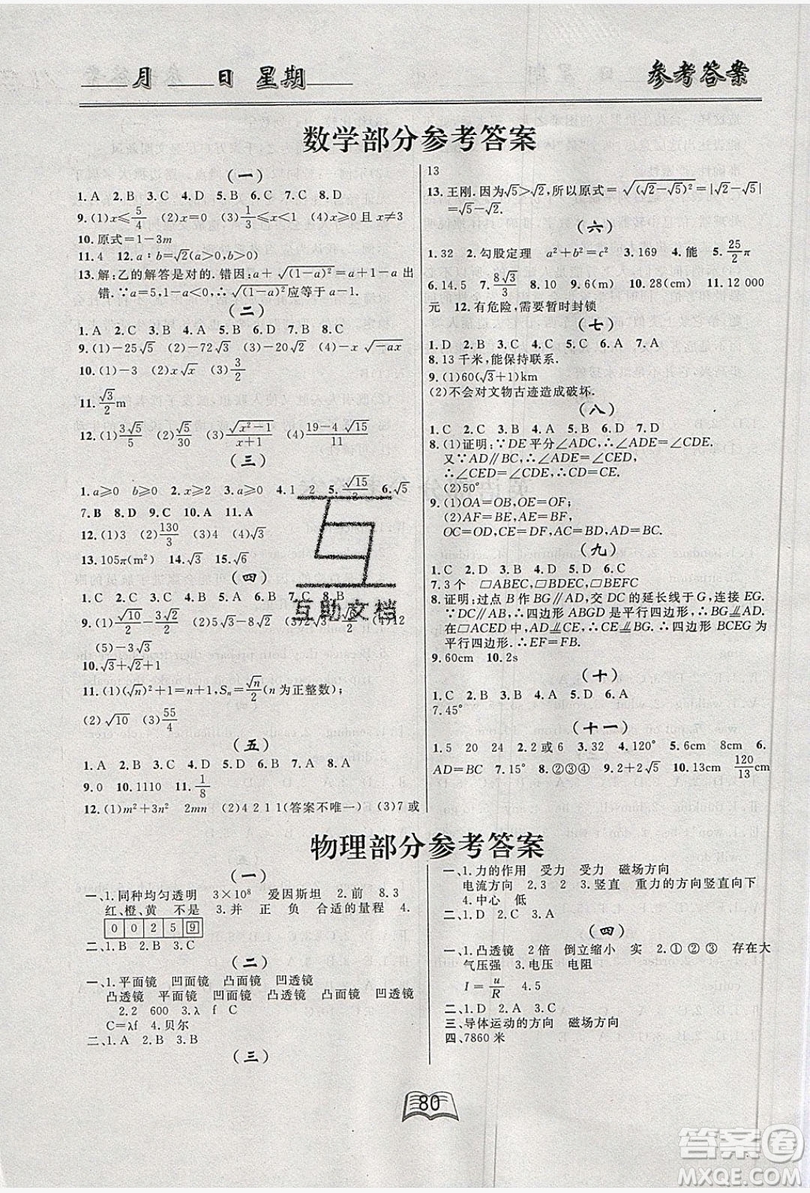 月 日 星期 参考答案
数学部分参考答案
(一)
1.A 2.B 3.C 4.D 5.B 6.C 7.D 8.D
9.(1)x≤5/4 (2)x>0 (3)1/3≤x<1 (4)x≥0且x≠3
10.原式=1-3m
11.4 12.a:b=√2(a>0,b>0)
13.解:乙的解答是对的.错因:a+√(1-a)²=a+1-a出
错.∵a=5,1-a<0∴√(1-a)²应等于a-1.
(二)
1.A 2.B 3.C 4.D 5.A 6.B 7.C 8.B
9.(1)-25√5 (2)-72√5 (3)20√3 (4)-x√-ax
10.(1)-3 (2)x√x (3)3/2
11.√3/2 m
12.(1)3√5/5 (2)7√5/5 (3)√x²-1/x+1 (4)19-4√15/11
(三)
1.a≥0 b≥0 2.a≥0 b>0 4.1 2 5.√15/2 6.√5
7.B 8.D 9.D 10.A 11.A
12.(1)3 (2)130/3 (3)2 (4)√3
13.105π(m²) 14.√3 15.√6
(四)
1.C 2.C 3.B 4.B 5.B 6.B 7.C 8.C
9.(1)√10/2-3√2/2 (2)5√3-8√2 (3)2 (4)12
(5)-3√3
10.√3+√2
11.(1)(√n)²+1=n+1,Sₙ=√n/2(n为正整数);
(2)√10 (3)55/4
(五)
1.A 2.A 3.C 4.D 5.D 6.B 7.A 8.B
9.0 10.1110 11.1/8
12.(1)m²+3n² 2mn (2)4 2 1 1(答案不唯一) (3)7或
13
13.王刚.因为√5>√2,所以原式=√(√2-√5)²=|√2-√5|
=√5-√2.
(六)
1.32 2.勾股定理 a²+b²=c² 3.169 4.能 5.25/2π
6.14.5 7.8√3/3 8.10 9.10 10.28(cm) 11.12000
元 12.有危险,需要暂时封锁
(七)
1.D 2.C 3.D 4.B 5.C 6.A 7.A
8.13千米,能保持联系.
9.(1)60(√3+1)km
(2)不会对文物古迹造成破坏.
(八)
1.C 2.B 3.D 4.C 5.B 6.C 7.A
8.(1)证明:∵DE平分∠ADC,∴∠ADE=∠CDE.
又∵AD∥BC,∴∠ADE=∠CED.
∴∠CED=∠CDE.∴CD=CE.
(2)50°
9.(1)OA=OE;
(2)AF=BE,
OC=OD,CE=DF.
BD=AC.
(九)
1.C 2.D 3.D 4.A 5.B 6.B
7.3个 □ABEC,□BDEC,□BEFC
8.证明:过点B作BG∥AD,交DC的延长线于G,连接EG.
∵DC∥AB,∴四边形ABGD是平行四边形,∴BG⫽AD.
在□ACED中,AD⫽CE,∴CE⫽BG.∴四边形BCEG为
平行四边形,∴EF=FB.
9.60cm 10.2s
(十)
1.C 2.B 3.B 4.A 5.D 6.A
7.45°
(十一)
1.5 20 24 2.2或6 3.32 4.120° 5.16cm 6.
AD=BC 7.15° 8.②③④ 9.2+2√2 10.5cm 120/13cm
物理部分参考答案
(一)
一、1.同种均匀透明 3×10⁸ 爱因斯坦 2.前 8.3
红、橙、黄 不是 3.并 正 负 合适的量程 4.
0 0 2 5 9
二、1.B 2.D 3.A
(二)
一、1.平面镜 凹面镜 凸透镜 凸面镜 凹透镜
凸透镜 平面镜 凹面镜 凹透镜 凸面镜 凹透镜
2.2 600 3.λ
C=λf 4.贝尔
二、1.A 2.C 3.D
(三)
一、1.力的作用 受力 受力 磁场方向
电流方向 2.3 2 3.竖直 重力的方向竖直向下
4.中心 低
二、1.D 2.C 3.A
(四)
一、1.凸透镜 2倍 倒立缩小 实 2.①②③ 存在大
气压强 3.电压 电阻
I=u/R
二、1.D 2.C 3.A
三、导体运动的方向 磁场方向
四、7860米
80
互助文档
答案圈
MXQE.COM